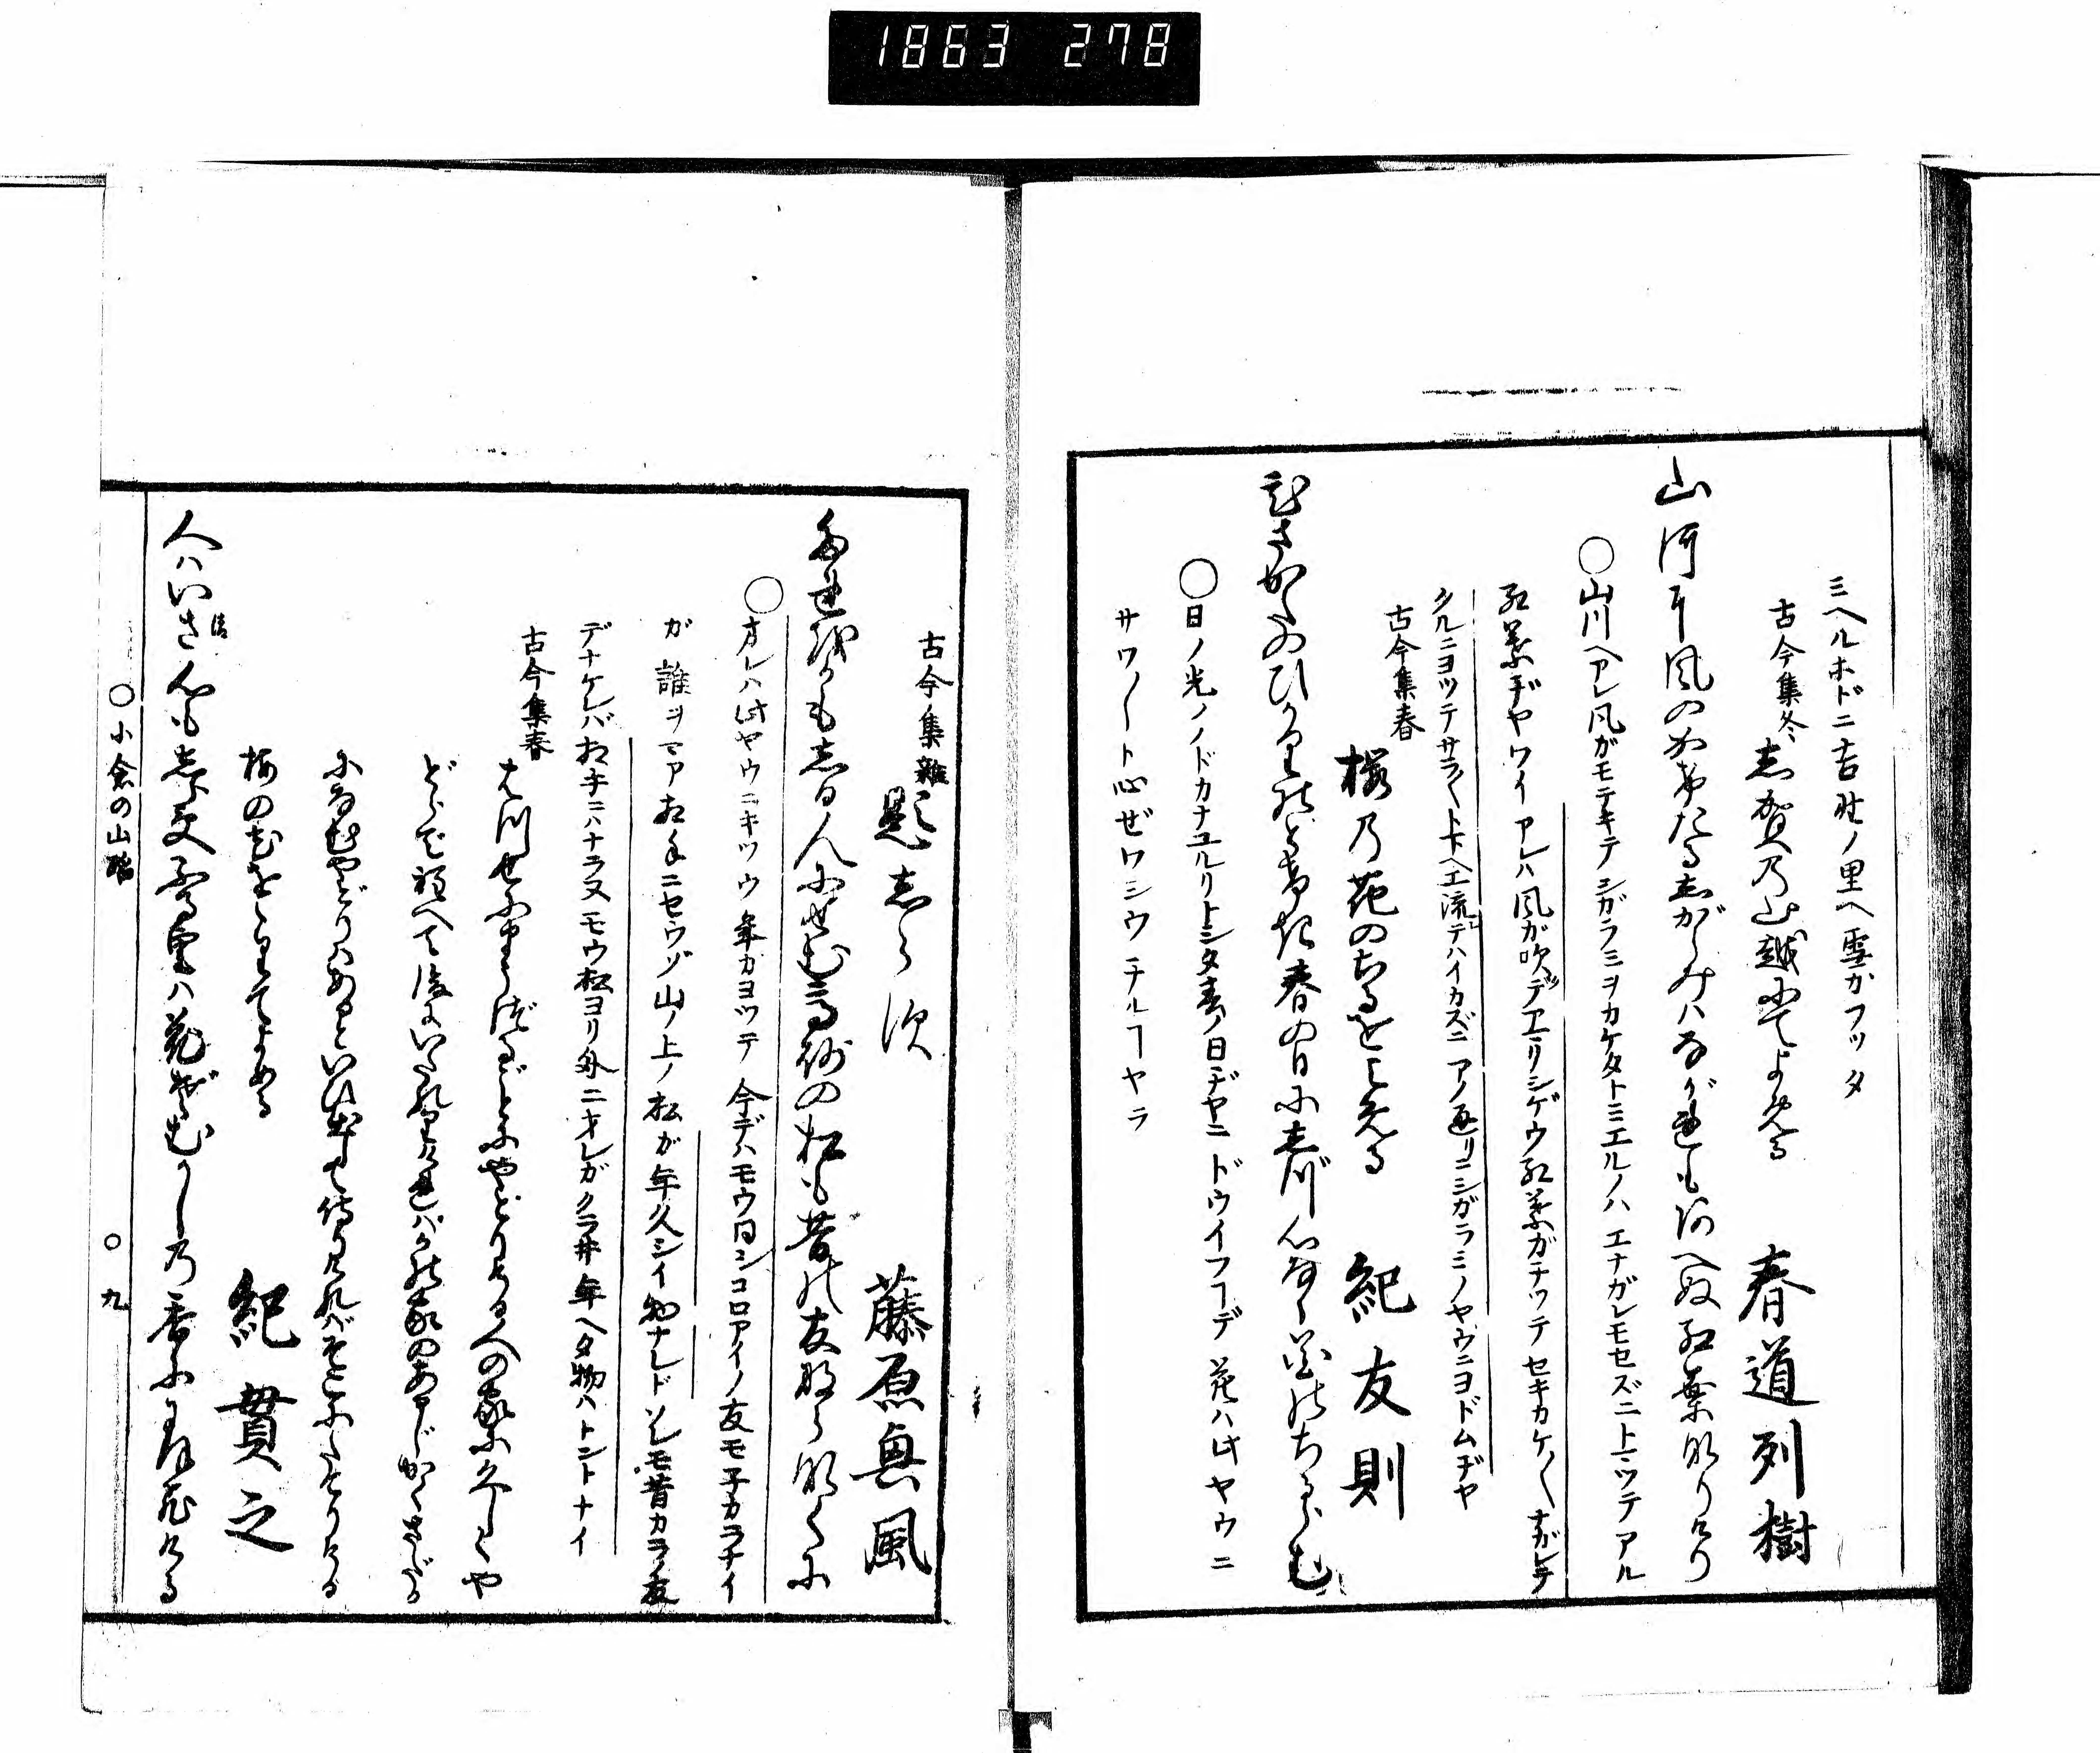 1863 278
ミヘルホドニ吉野ノ里ヘ雪カフツタ
古今集冬 志賀乃山越にてよめる 春道列樹
山河に風のかけたるしがらみハながれもあへぬ紅葉なりけり
○山川ヘアレ風ガモテキテシガラミヲカケタトミエルノハ エナガレモセズニトミツテアル
紅葉ヂヤワイ アレハ風ガ吹デアマリシゲウ紅葉ガチツテ セキカケ〳〵ナガレテ
クルニヨツテサラ〳〵ト下ヘエ流レテハイカズニ アノ通リニシガラミノヤウニヨドムヂヤ
古今集春 桜乃花のちるをよめる 紀友則
ひさかたのひかりのどけき春の日にしづ心なく花のちるらむ
○日ノ光ノノドカナユルリトシタ春ノ日ヂヤニ ドウイフヿデ 花ハ此ヤウニ
サワ〳〵ト心ぜワシウ チルヿヤラ
古今集雑 題しらず 藤原興風
たれをかもしる人にせむ高砂の松も昔の友ならなくに
○オレハ此ヤウニキツウ 年カヨツテ 今デハモウ同シコロアイノ友モ子カラナイ
が 誰ヲマアお手ニセウゾ 山ノ上ノ松が年久シイ物ナレドソレモ昔カラノ友
デナケレバお手ニハナラヌ モウ松ヨリ外ニオレガクラ井年ヘタ物ハトントナイ
古今集春 はつせにまうづるごとにやどりける人の家に久しくや
どらで程へて後にいたれりければかの家のあるじかくさだか
になむやどりハあるといひ出て侍りければそこにたてりける
梅の花ををりてよめる 紀貫之
人ハいさ心も志らずふる里ハ花ぞむかし乃香ににほひける
○小倉の山 ○九